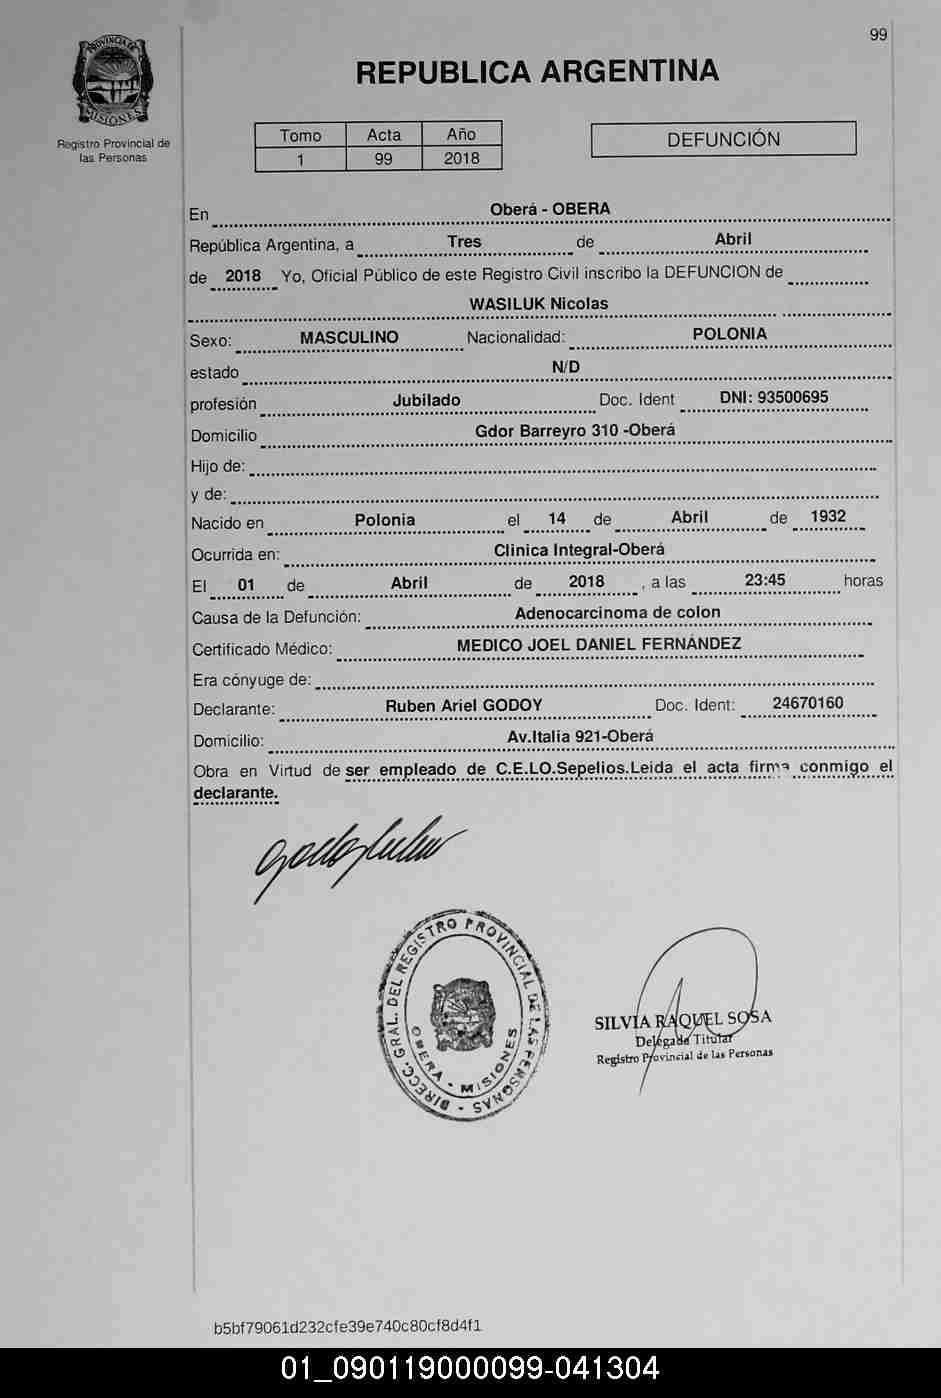 99
PROVINCIA DE
MISIONES
Registro Provincial de
las Personas
REPUBLICA ARGENTINA
Tomo Acta Año
1 99 2018
DEFUNCIÓN
En Oberá - OBERA
República Argentina, a Tres de Abril
de 2018 Yo, Oficial Público de este Registro Civil inscribo la DEFUNCION de
WASILUK Nicolas
Sexo: MASCULINO Nacionalidad: POLONIA
estado N/D
profesión Jubilado Doc. Ident DNI: 93500695
Domicilio Gdor Barreyro 310 -Oberá
Hijo de:
y de:
Nacido en Polonia el 14 de Abril de 1932
Ocurrida en: Clinica Integral-Oberá
El 01 de Abril de 2018 , a las 23:45 horas
Causa de la Defunción: Adenocarcinoma de colon
Certificado Médico: MEDICO JOEL DANIEL FERNÁNDEZ
Era cónyuge de:
Declarante: Ruben Ariel GODOY Doc. Ident: 24670160
Domicilio: Av.Italia 921-Oberá
Obra en Virtud de ser empleado de C.E.LO.Sepelios.Leida el acta firma conmigo el
declarante.
DIRECC. GRAL. DEL REGISTRO PROVINCIAL DE LAS PERSONAS -
OBERA - MISIONES
SILVIA RAQUEL SOSA
Delegada Titular
Registro Provincial de las Personas
b5bf79061d232cfe39e740c80cf8d4f1
01_090119000099-041304